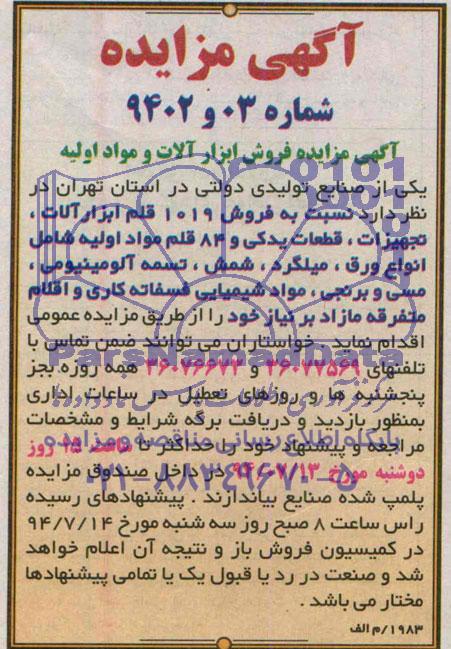 آگهی مزایده
شماره ۰۳ و ۹۴۰۲
آگهی مزایده فروش ابزار آلات و مواد اولیه
یکی از صنایع تولیدی دولتی در استان تهران در
نظر دارد نسبت به فروش ۱۰۱۹ قلم ابزار آلات ،
تجهیزات ، قطعات یدکی و ۸۴ قلم مواد اولیه شامل
انواع ورق ، میلگرد ، شمش ، تسمه آلومینیومی ،
مسی و برنجی ، مواد شیمیایی فسفاته کاری و اقلام
متفرقه مازاد بر نیاز خود را از طریق مزایده عمومی
اقدام نماید . خواستاران می توانند ضمن تماس با
تلفنهای ۳۶۰۷۷۵۶۹ و ۳۶۰۷۶۶۷۳ همه روزه بجز
پنجشنبه ها و روزهای تعطیل در ساعات اداری
بمنظور بازدید و دریافت برگه شرایط و مشخصات
مراجعه و پیشنهاد خود را حداکثر تا ساعت ۱۵ روز
دوشنبه مورخ ۹۴/۰۷/۱۳ در داخل صندوق مزایده
پلمپ شده صنایع بیاندازند . پیشنهادهای رسیده
راس ساعت ۸ صبح روز سه شنبه مورخ ۹۴/۷/۱۴
در کمیسیون فروش باز و نتیجه آن اعلام خواهد
شد و صنعت در رد یا قبول یک یا تمامی پیشنهادها
مختار می باشد .
۱۹۸۳/م الف
ParsNamadData
پایگاه اطلاع رسانی مناقصه و مزایده
۰۲۱-۸۸۳۴۹۶۷۰-۵